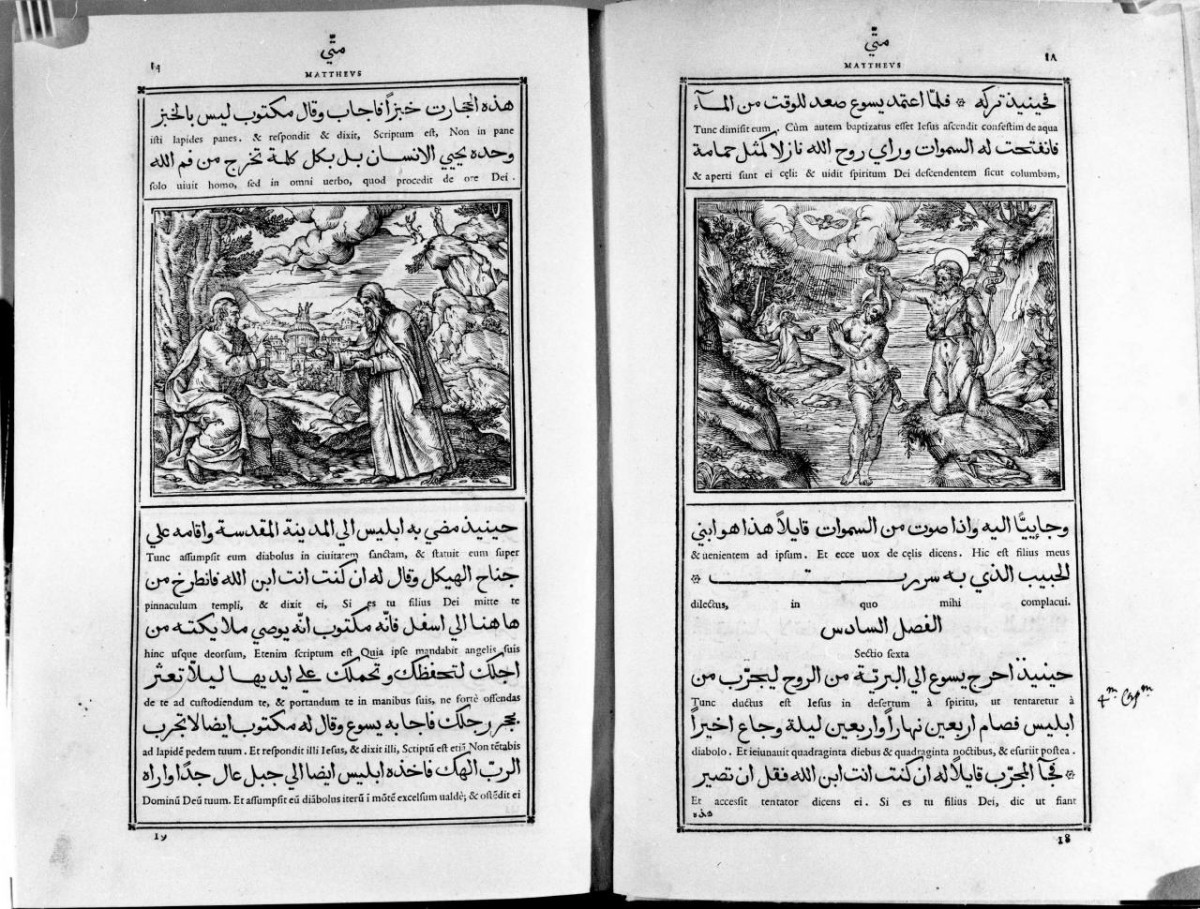 متّي
MATTHEVS
١٨
فحينيذ تركه ۞ فلمّا اعتمد يسوع صعد للوقت من المـآء
Tunc dimisit eum. Cùm autem baptizatus esset Iesus ascendit confestim de aqua
فانفتحت له السموات وراي روح الله نازلا كمثل حمامة
& aperti sunt ei cęli: & uidit spiritum Dei descendentem sicut columbam,
وجاييًا اليه واذا صوت من السموات قايلاً هذا هو ابني
& uenientem ad ipsum. Et ecce uox de cęlis dicens. Hic est filius meus
الحبيب الذي به سررت ۞
dilectus, in quo mihi complacui.
الفصل السادس
Sectio sexta
حينيذ اخرج يسوع الي البريّة من الروح ليجرّب من
Tunc ductus est Iesus in desertum à spiritu, ut tentaretur à
ابليس فصام اربعين نهاراً واربعين ليلة وجاع اخيراً
diabolo. Et ieiunauit quadraginta diebus & quadraginta noctibus, & esuriit postea.
۞ فجآ المجرّب قايلاً له ان كنت انت ابن الله فقل ان تصير
Et accessit tentator dicens ei. Si es tu filius Dei, dic ut fiant
هذه
18
4.m Cap.m
متّي
MATTHEVS
١٩
هذه الحجارت خبزاً فاجاب وقال مكتوب ليس بالخبز
isti lapides panes. & respondit & dixit, Scriptum est, Non in pane
وحده يحيي الانسان بل بكل كلمة تخرج من فم الله
solo uiuit homo, sed in omni uerbo, quod procedit de ore Dei.
حينيذ مضي به ابليس الي المدينة المقدسة واقامه علي
Tunc assumpsit eum diabolus in ciuitatem sanctam, & statuit eum super
جناح الهيكل وقال له ان كنت انت ابن الله فانطرح من
pinnaculum templi, & dixit ei, Si es tu filius Dei mitte te
هاهنا الي اسفل فانّه مكتوب انّه يوصي ملايكته من
hinc usque deorsum, Etenim scriptum est Quia ipse mandabit angelis suis
اجلك لتحفظك وتحملك علي ايديها ليلاّ تعثر
de te ad custodiendum te, & portandum te in manibus suis, ne fortè offendas
بحجر رجلك فاجابه يسوع وقال له مكتوب ايضا لا تجرب
ad lapidẽ pedem tuum. Et respondit illi Iesus, & dixit illi, Scriptũ est etiã Non tẽtabis
الربّ الهك فاخذه ابليس ايضا الي جبل عال جدّا واراه
Dominũ Deũ tuum. Et assumpsit eũ diabolus iterũ ĩ mõtẽ excelsum ualdè; & ostẽdit ei
19